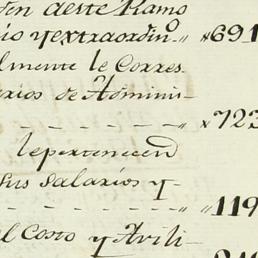 den deste Ramo
io y extraordin.º " 691
lmente le Corres
arios de Admini-
" 723
le pertenecen
sus salarios y-
" 119
el Costo y Avili-